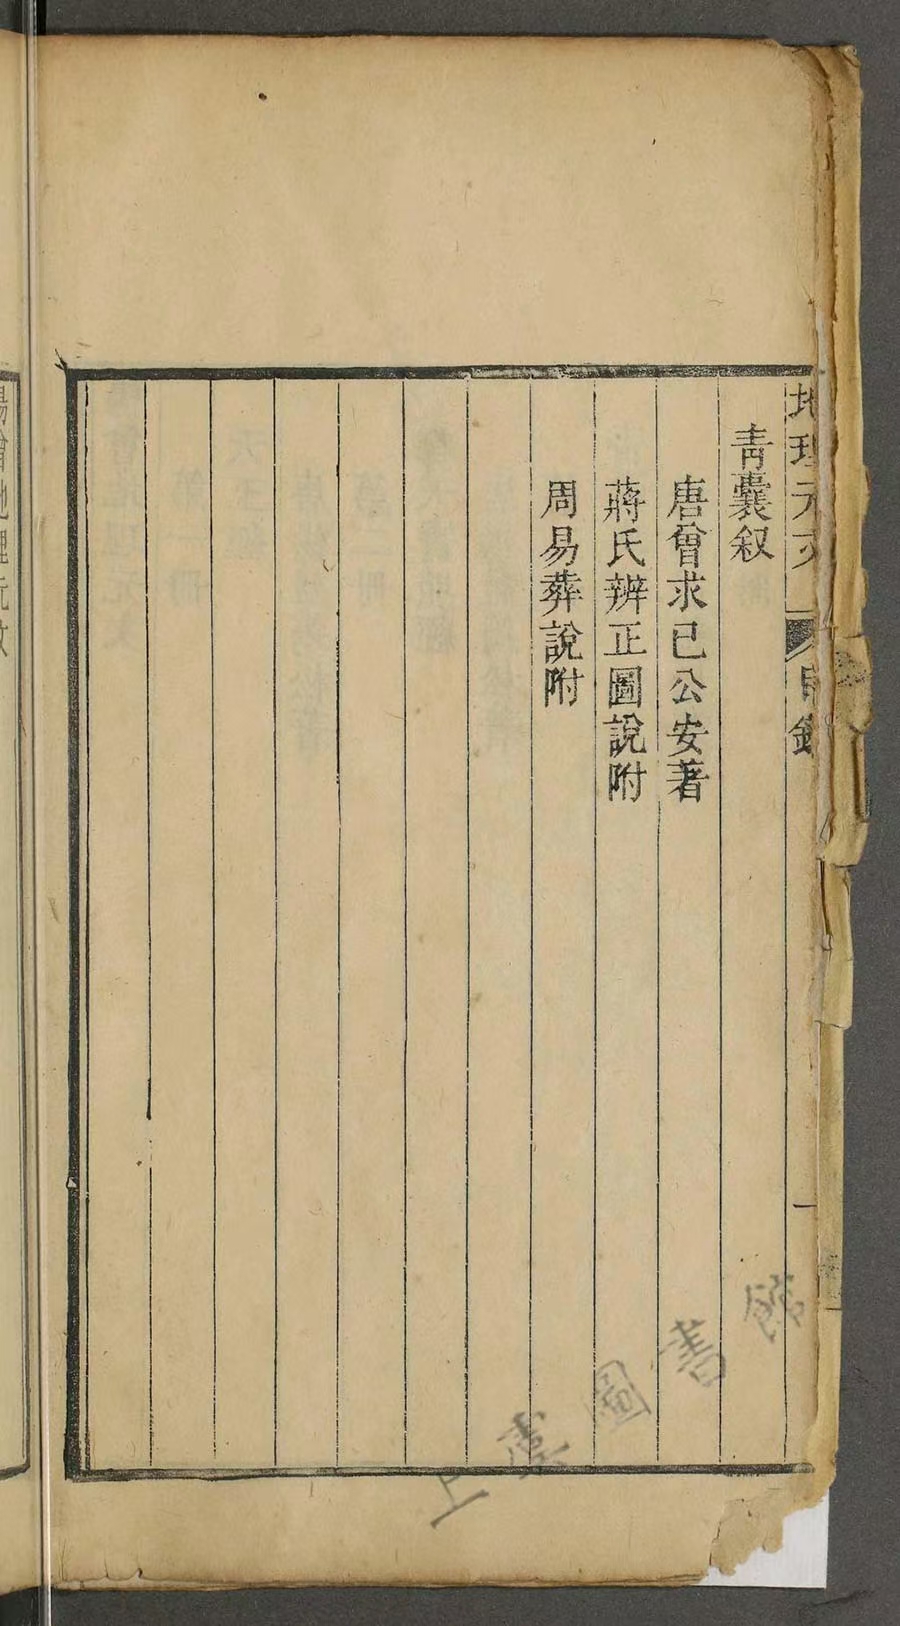 地理元文
目錄
一
青囊叙
唐曾求己公安著
蔣氏辨正圖說附
周易葬說附
上虞圖書館